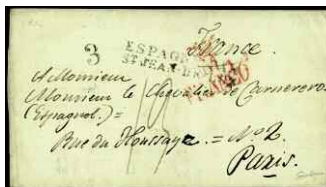 3
ESPAGNE
ST JEAN-DE-LUZ
France.
A Monsieur
Monsieur le Chevalier de Carnerero
(Espagnol.)=
Rue du Houssaye .= Nº 2
Paris.